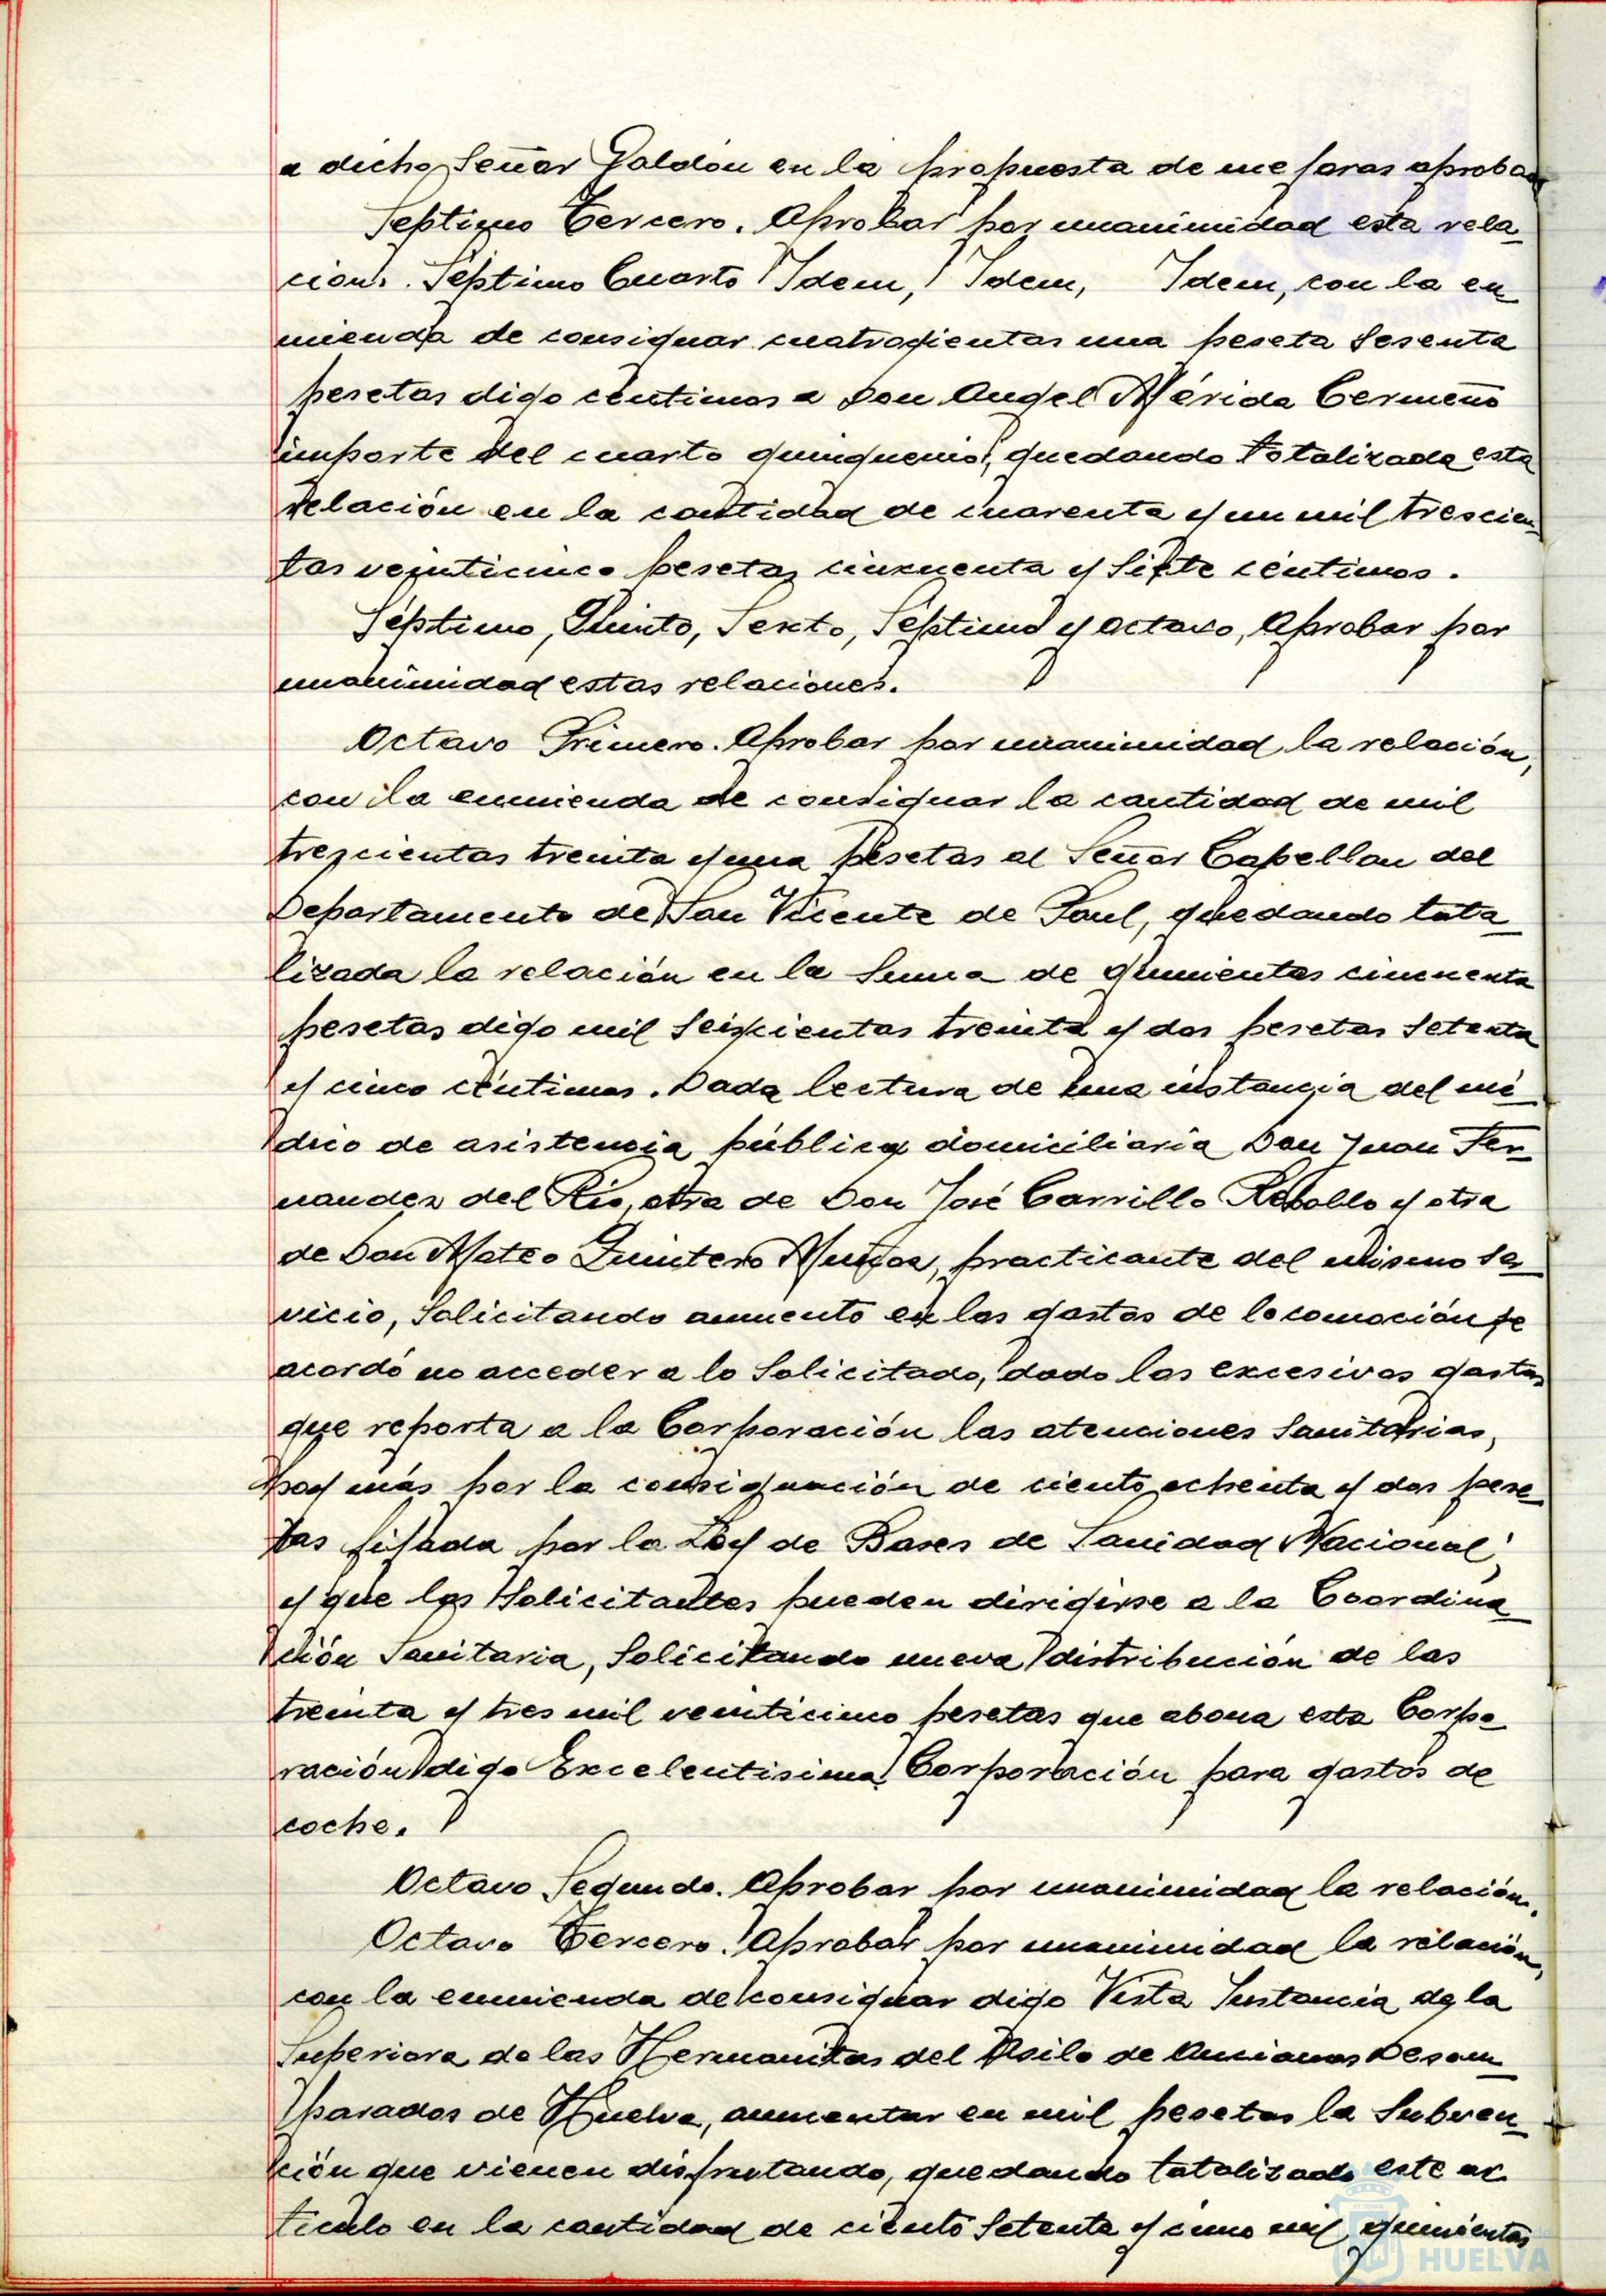 a dicho Señor Galdón en la propuesta de mejoras aprobada
Septimo Tercero. Aprobar por unanimidad esta rela-
cion. Septimo Cuarto Idem, Idem, Idem, con la en-
mienda de consignar cuatrocientas una peseta sesenta
pesetas digo céntimos a Don Angel Mérida Cermeño
importe del cuarto quinquenio, quedando totalizada esta
relación en la cantidad de cuarenta y un mil trescien-
tas veinticinco pesetas cincuenta y siete céntimos.
Séptimo, Quinto, Sexto, Séptimo y octavo, Aprobar por
unanimidad estas relaciones.
Octavo Primero. Aprobar por unanimidad la relación,
con la enmienda de consignar la cantidad de mil
trescientas treinta y una pesetas al Señor Capellan del
Departamento de San Vicente de Paul, quedando tota-
lizada la relación en la suma de quinientas cincuenta
pesetas digo mil seiscientas treinta y dos pesetas setenta
y cinco céntimos. Dada lectura de una instancia del mé-
dico de asistencia pública domiciliaria Don Juan Fer-
nandez del Río, otra de Don José Carrillo Rebollo y otra
de Don Mateo Quintero Muñoz, practicante del mismo ser-
vicio, solicitando aumento en los gastos de locomoción se
acordó no acceder a lo solicitado, dado los excesivos gastos
que reporta a la Corporación las atenciones sanitarias,
hoy más por la consignación de ciento ochenta y dos pese-
tas fijada por la Ley de Bases de Sanidad Nacional,
y que los solicitantes pueden dirigirse a la Coordina-
ción Sanitaria, solicitando nueva distribución de las
treinta y tres mil veinticinco pesetas que abona esta Corpo-
ración digo Excelentisima Corporación para gastos de
coche.
Octavo Segundo. Aprobar por unanimidad la relación.
Octavo Tercero. Aprobar por unanimidad la relación,
con la enmienda de consignar digo Vista Instancia de la
Superiora de las Hermanitas del Asilo de Ancianos Desam-
parados de Huelva, aumentar en mil pesetas la subven-
ción que vienen disfrutando, quedando totalizado este ar-
tículo en la cantidad de ciento setenta y cinco mil quinientas
HUELVA